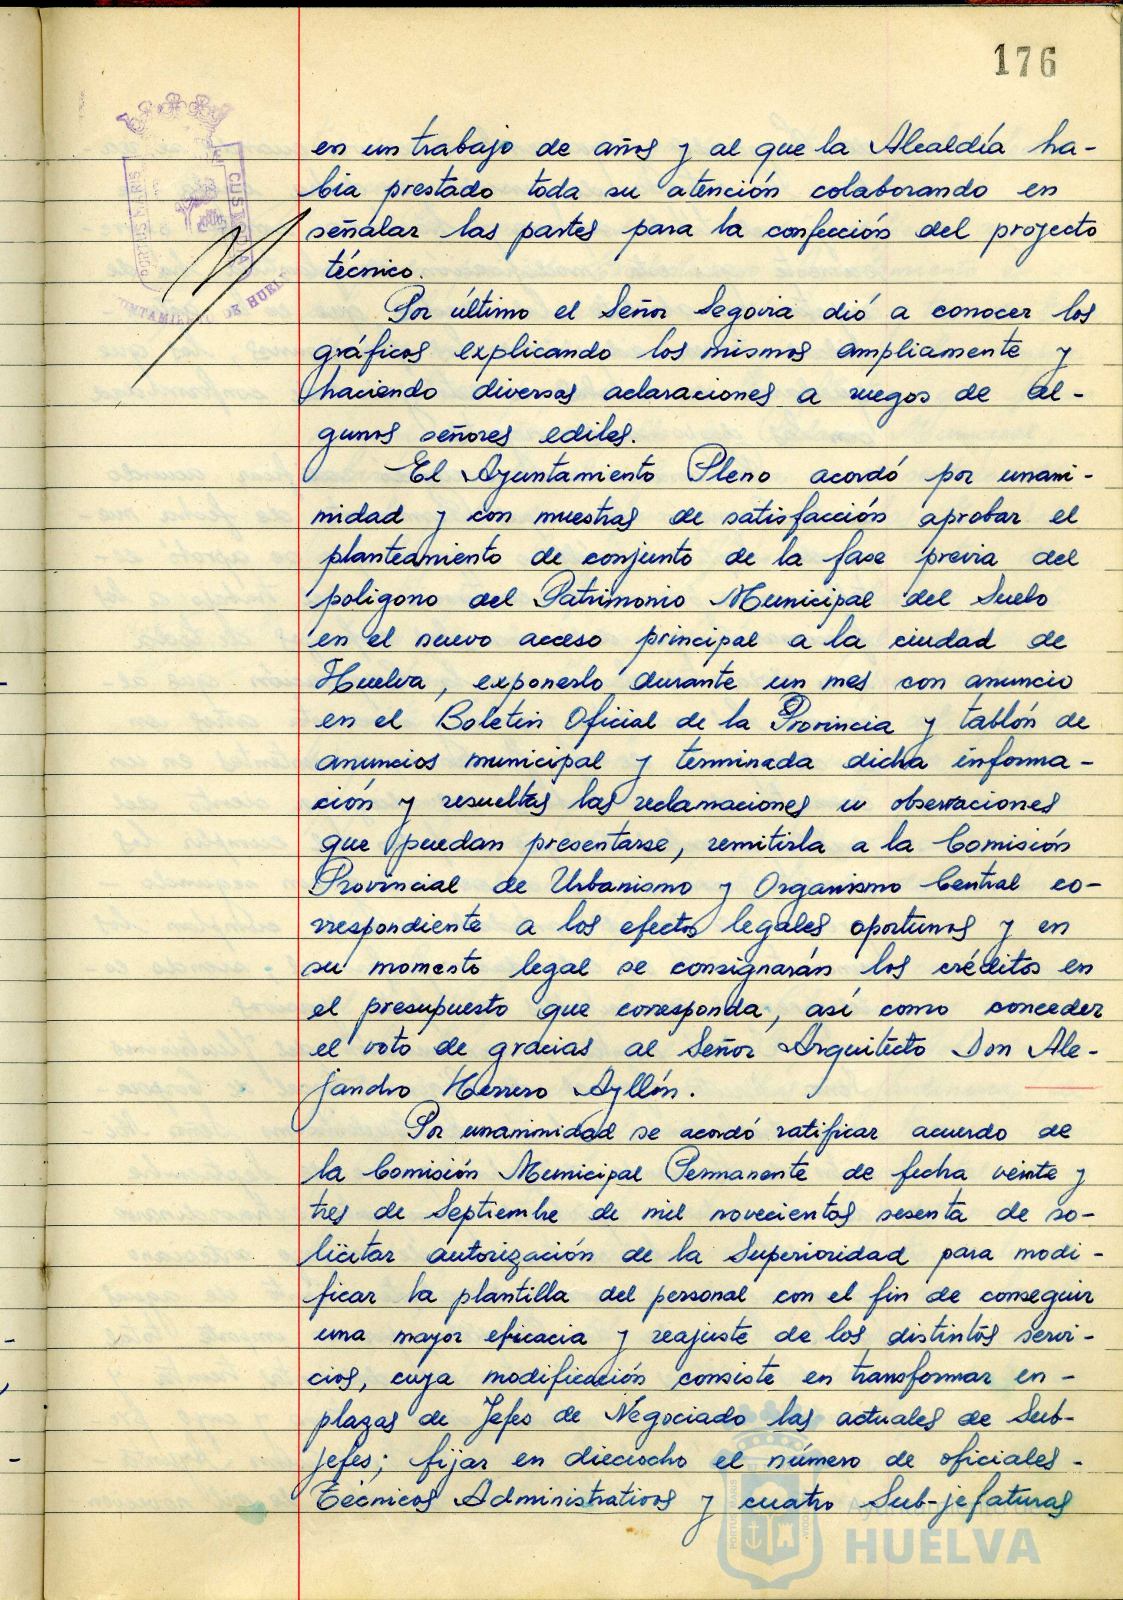 176
en un trabajo de años y al que la Alcaldía ha-
bia prestado toda su atención colaborando en
señalar las partes para la confección del projecto
técnico.
Por último el Señor Segovia dió a conocer los
gráficos explicando los mismos ampliamente y
haciendo diversas aclaraciones a ruegos de al-
gunos señores ediles.
El Ayuntamiento Pleno acordó por unani-
midad y con muestras de satisfacción aprobar el
planteamiento de conjunto de la fase previa del
poligono del Patrimonio Municipal del Suelo
en el nuevo acceso principal a la ciudad de
Huelva, exponerlo durante un mes con anuncio
en el Boletin Oficial de la Provincia y tablón de
anuncios municipal y terminada dicha informa-
ción y resueltas las reclamaciones u observaciones
que puedan presentarse, remitirla a la Comisión
Provincial de Urbanismo y Organismo Central co-
rrespondiente a los efectos legales oportunos y en
su momento legal se consignarán los créditos en
el presupuesto que corresponda, así como conceder
el voto de gracias al Señor Arquitecto Don Ale-
jandro Herrero Ayllón.
Por unanimidad se acordó ratificar acuerdo de
la Comisión Municipal Permanente de fecha veinte y
tres de Septiembre de mil novecientos sesenta de so-
licitar autorización de la Superioridad para modi-
ficar la plantilla del personal con el fin de conseguir
una mayor eficacia y reajuste de los distintos servi-
cios, cuya modificación consiste en transformar en-
plazas de Jefes de Negociado las actuales de Sub-
jefes; fijar en dieciocho el número de oficiales-
Técnicos Administrativos y cuatro Sub-jefaturas
PORTUS MARIS
CUSTODIA
AYUNTAMIENTO DE HUELVA
Ayuntamiento de
HUELVA